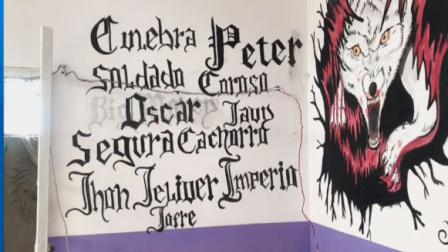 Cinebra Peter
Soldado Coroso
Oscar Javy
Segura Cachorro
Jhon Jeliver Imperio
Jofre